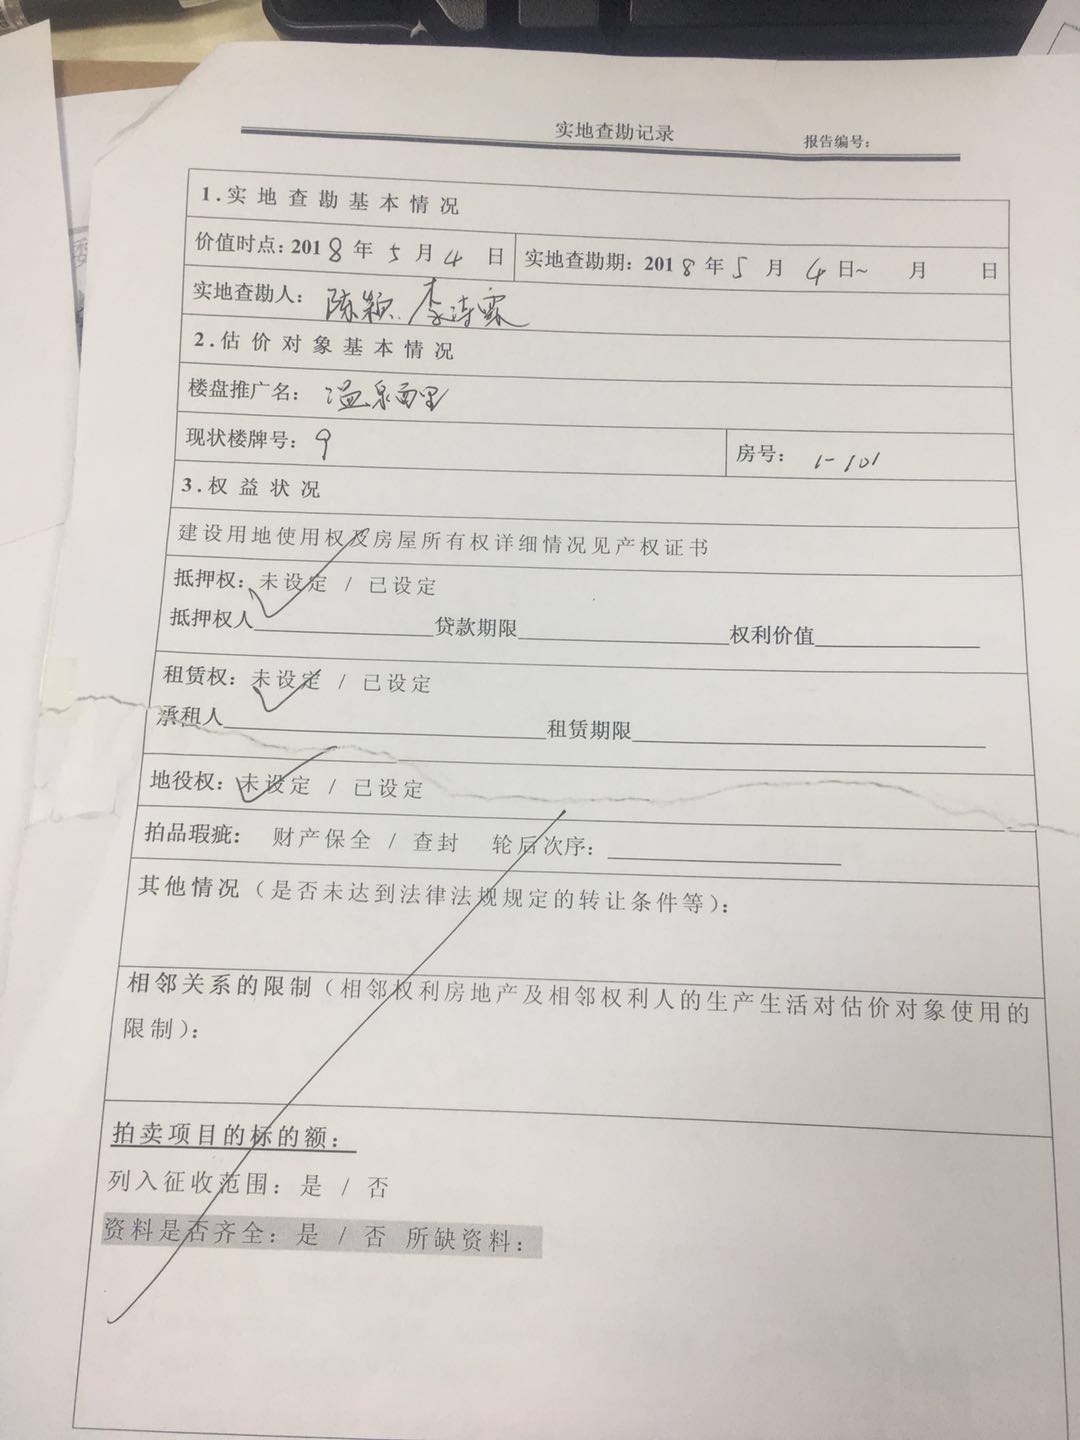 实地查勘记录
报告编号：
1.实地查勘基本情况
价值时点：2018年5月4日 实地查勘期：2018年5月4日~ 月 日
实地查勘人：陈颖 李诗霖
2.估价对象基本情况
楼盘推广名：温泉西里
现状楼牌号：9 房号：1-101
3.权益状况
建设用地使用权及房屋所有权详细情况见产权证书
抵押权：未设定 / 已设定
抵押权人 贷款期限 权利价值
租赁权：未设定 / 已设定
承租人 租赁期限
地役权：未设定 / 已设定
拍品瑕疵： 财产保全 / 查封 轮后次序：
其他情况（是否未达到法律法规规定的转让条件等）：
相邻关系的限制（相邻权利房地产及相邻权利人的生产生活对估价对象使用的
限制）：
拍卖项目的标的额：
列入征收范围：是 / 否
资料是否齐全：是 / 否 所缺资料：